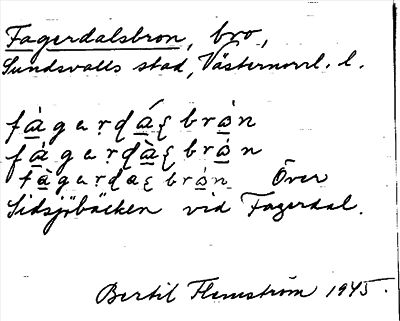 Fagerdalsbron, bro,
Sundsvalls stad, Västernorrl. l.
fàgerdáʂbrȯn
fàgerdàʂbrȯn
fàgerdaʂbrȯn Över
Sidsjöbäcken vid Fagerdal.
Bertil Flemström 1945.